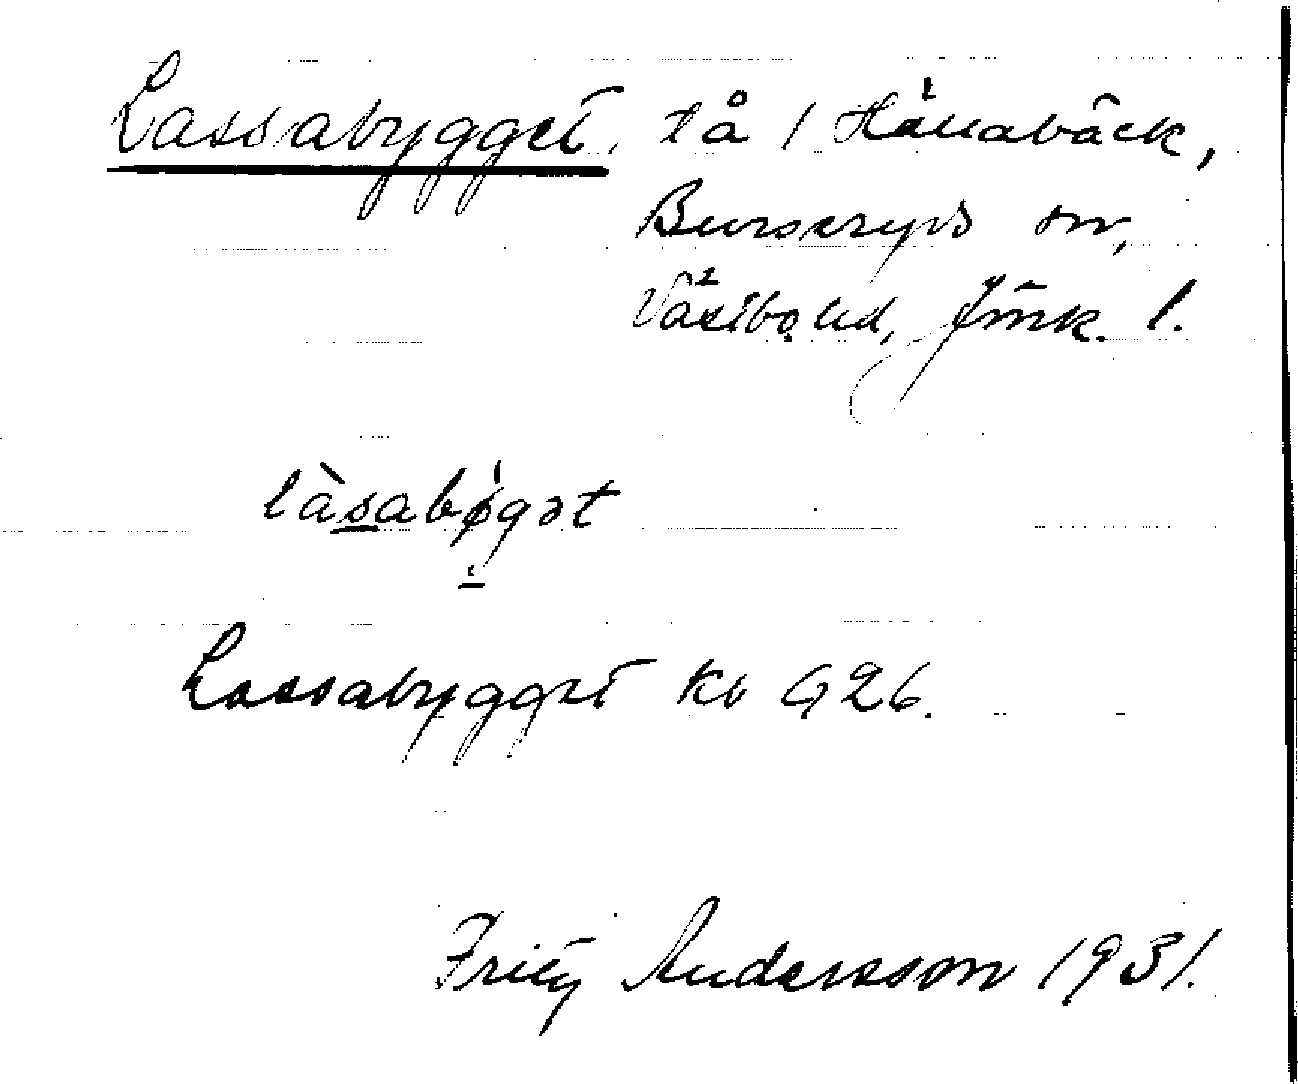 Lassabygget, tå / Hällabäck,
Burseryds sn,
Västbo hd, Jönk. l.
làsabøgət
Lassabygget kb G26.
Fritz Andersson 1931.